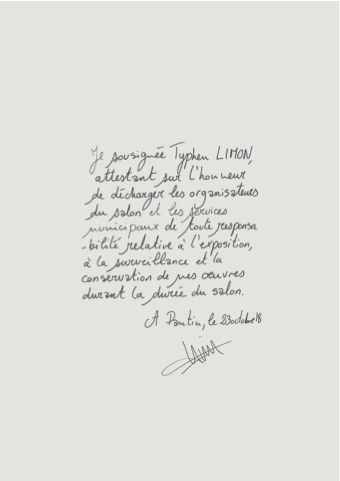 Je sousignée Typhen LIMON,
attestant sur l'honneur
de décharger les organisateurs
du salon et les services
municipaux de toute responsa
-bilité relative à l'exposition,
à la surveillance et la
conservation de mes oeuvres
durant la durée du salon.
A Pantin, le 23octobre18